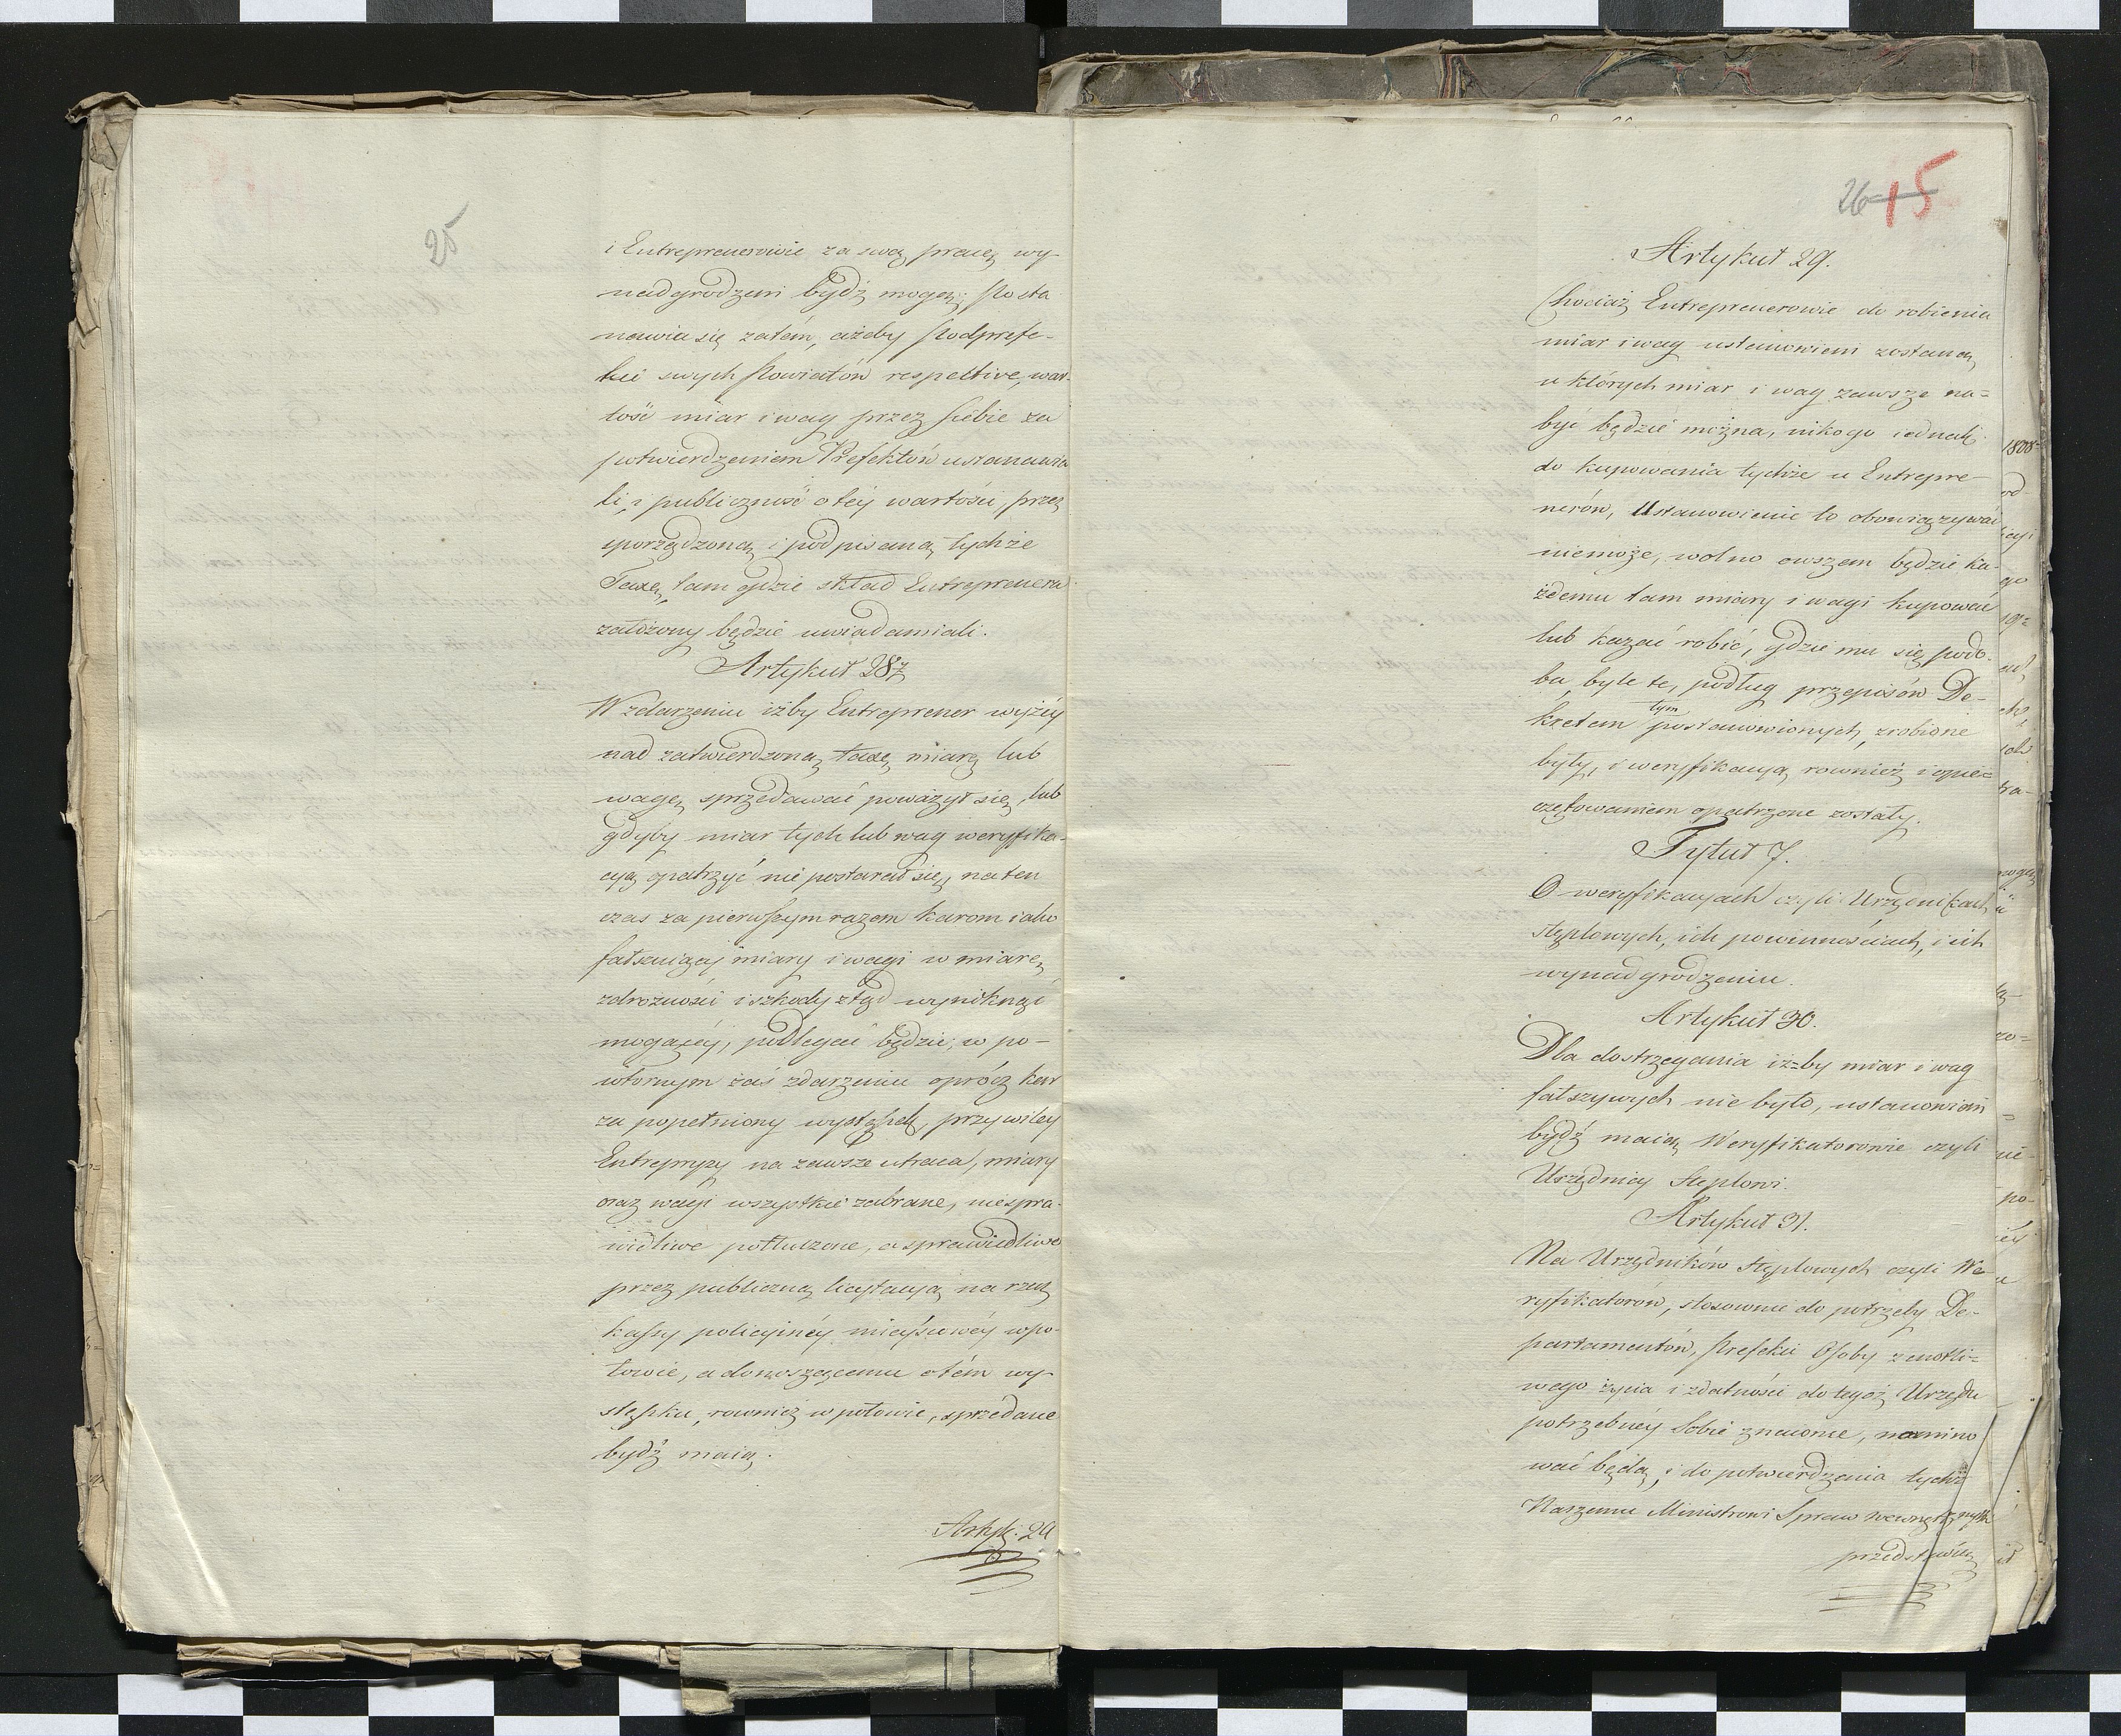 25
i Entreprenerowie za swą pracę wy-
nadgrodzeni bydź mogą; Posta
nawia się zatém, ażeby Podprefe-
kci swych Powiatów respective, war-
tość miar i wag przez siebie za
potwierdzeniem Prefektów ustanawia
li, i publiczność o téy wartości, przez
sporządzoną i podpisaną tychże
Taxę, tam gdzie skład Entreprenera
założony będzie uwiadamiali.
Artykuł 28.
W zdarzeniu iżby Entreprener wyżéy
nad zatwierdzoną taxę miarę lub
wagę sprzedawać poważył się, lub
gdyby miar tych lub wag weryfika-
cyą opatrzyć nie postarał się, na ten
czas za pierwszym razem karom iako
fałszuiący miary i wagi w miarę
zdrożności i szkody ztąd wyniknąć
mogącéy, podlegać będzie; w po-
wtórnym zaś zdarzeniu oprócz kar
za popełniony występek, przywiley
Entrepryzy na zawsze utraca, miary
oraz wagi wszystkie zabrane, niespra-
wiedliwe potłuczone, a sprawiedliwe
przez publiczną licytacyą na rzecz
kassy policyinéy mieyscowéy w po-
łowie, a donoszącemu o tém wy-
stępku, rownież w połowie, sprzédane
bydź maią.
Artyk: 29
26 15
Artykuł 29.
Chociaż Entreprenerowie do robienia
miar i wag ustanowieni zostaną,
u których miar i wag zawsze na=
być będzie można, nikogo iednak
do kupowania tychże u Entrepre-
nerów, Ustanowienie to obowiązywać
niemoże, wolno owszem będzie ka-
żdemu tam miary i wagi kupować
lub kazać robić, gdzie mu się podo-
ba, byle te, podług przepisów De-
kretem tym postanowionych, zrobione
były, i weryfikacyą rownież i opie=
czętowaniem opatrzone zostały.
Tytuł 7.
O weryfikacyach czyli Urzędnikach
Stęplowych, ich powinnościach, i ich
wynadgrodzeniu.
Artykuł 30.
Dla dostrzegania iżby miar i wag
fałszywych nie było, ustanowieni
bydź maią Weryfikatorowie czyli
Urzędnicy Stęplowi.
Artykuł 31.
Na Urzędników Stęplowych czyli We-
ryfikatorów, stosownie do potrzeby De-
partamentów, Prefekci Osoby z cnotli=
wego życia i zdatności do tegoż Urzędu
potrzebnéy Sobie znaiome, nomino
wać będą, i do potwierdzenia tychże
Naszemu Ministrowi Spraw wewnętrznych
przedstawią